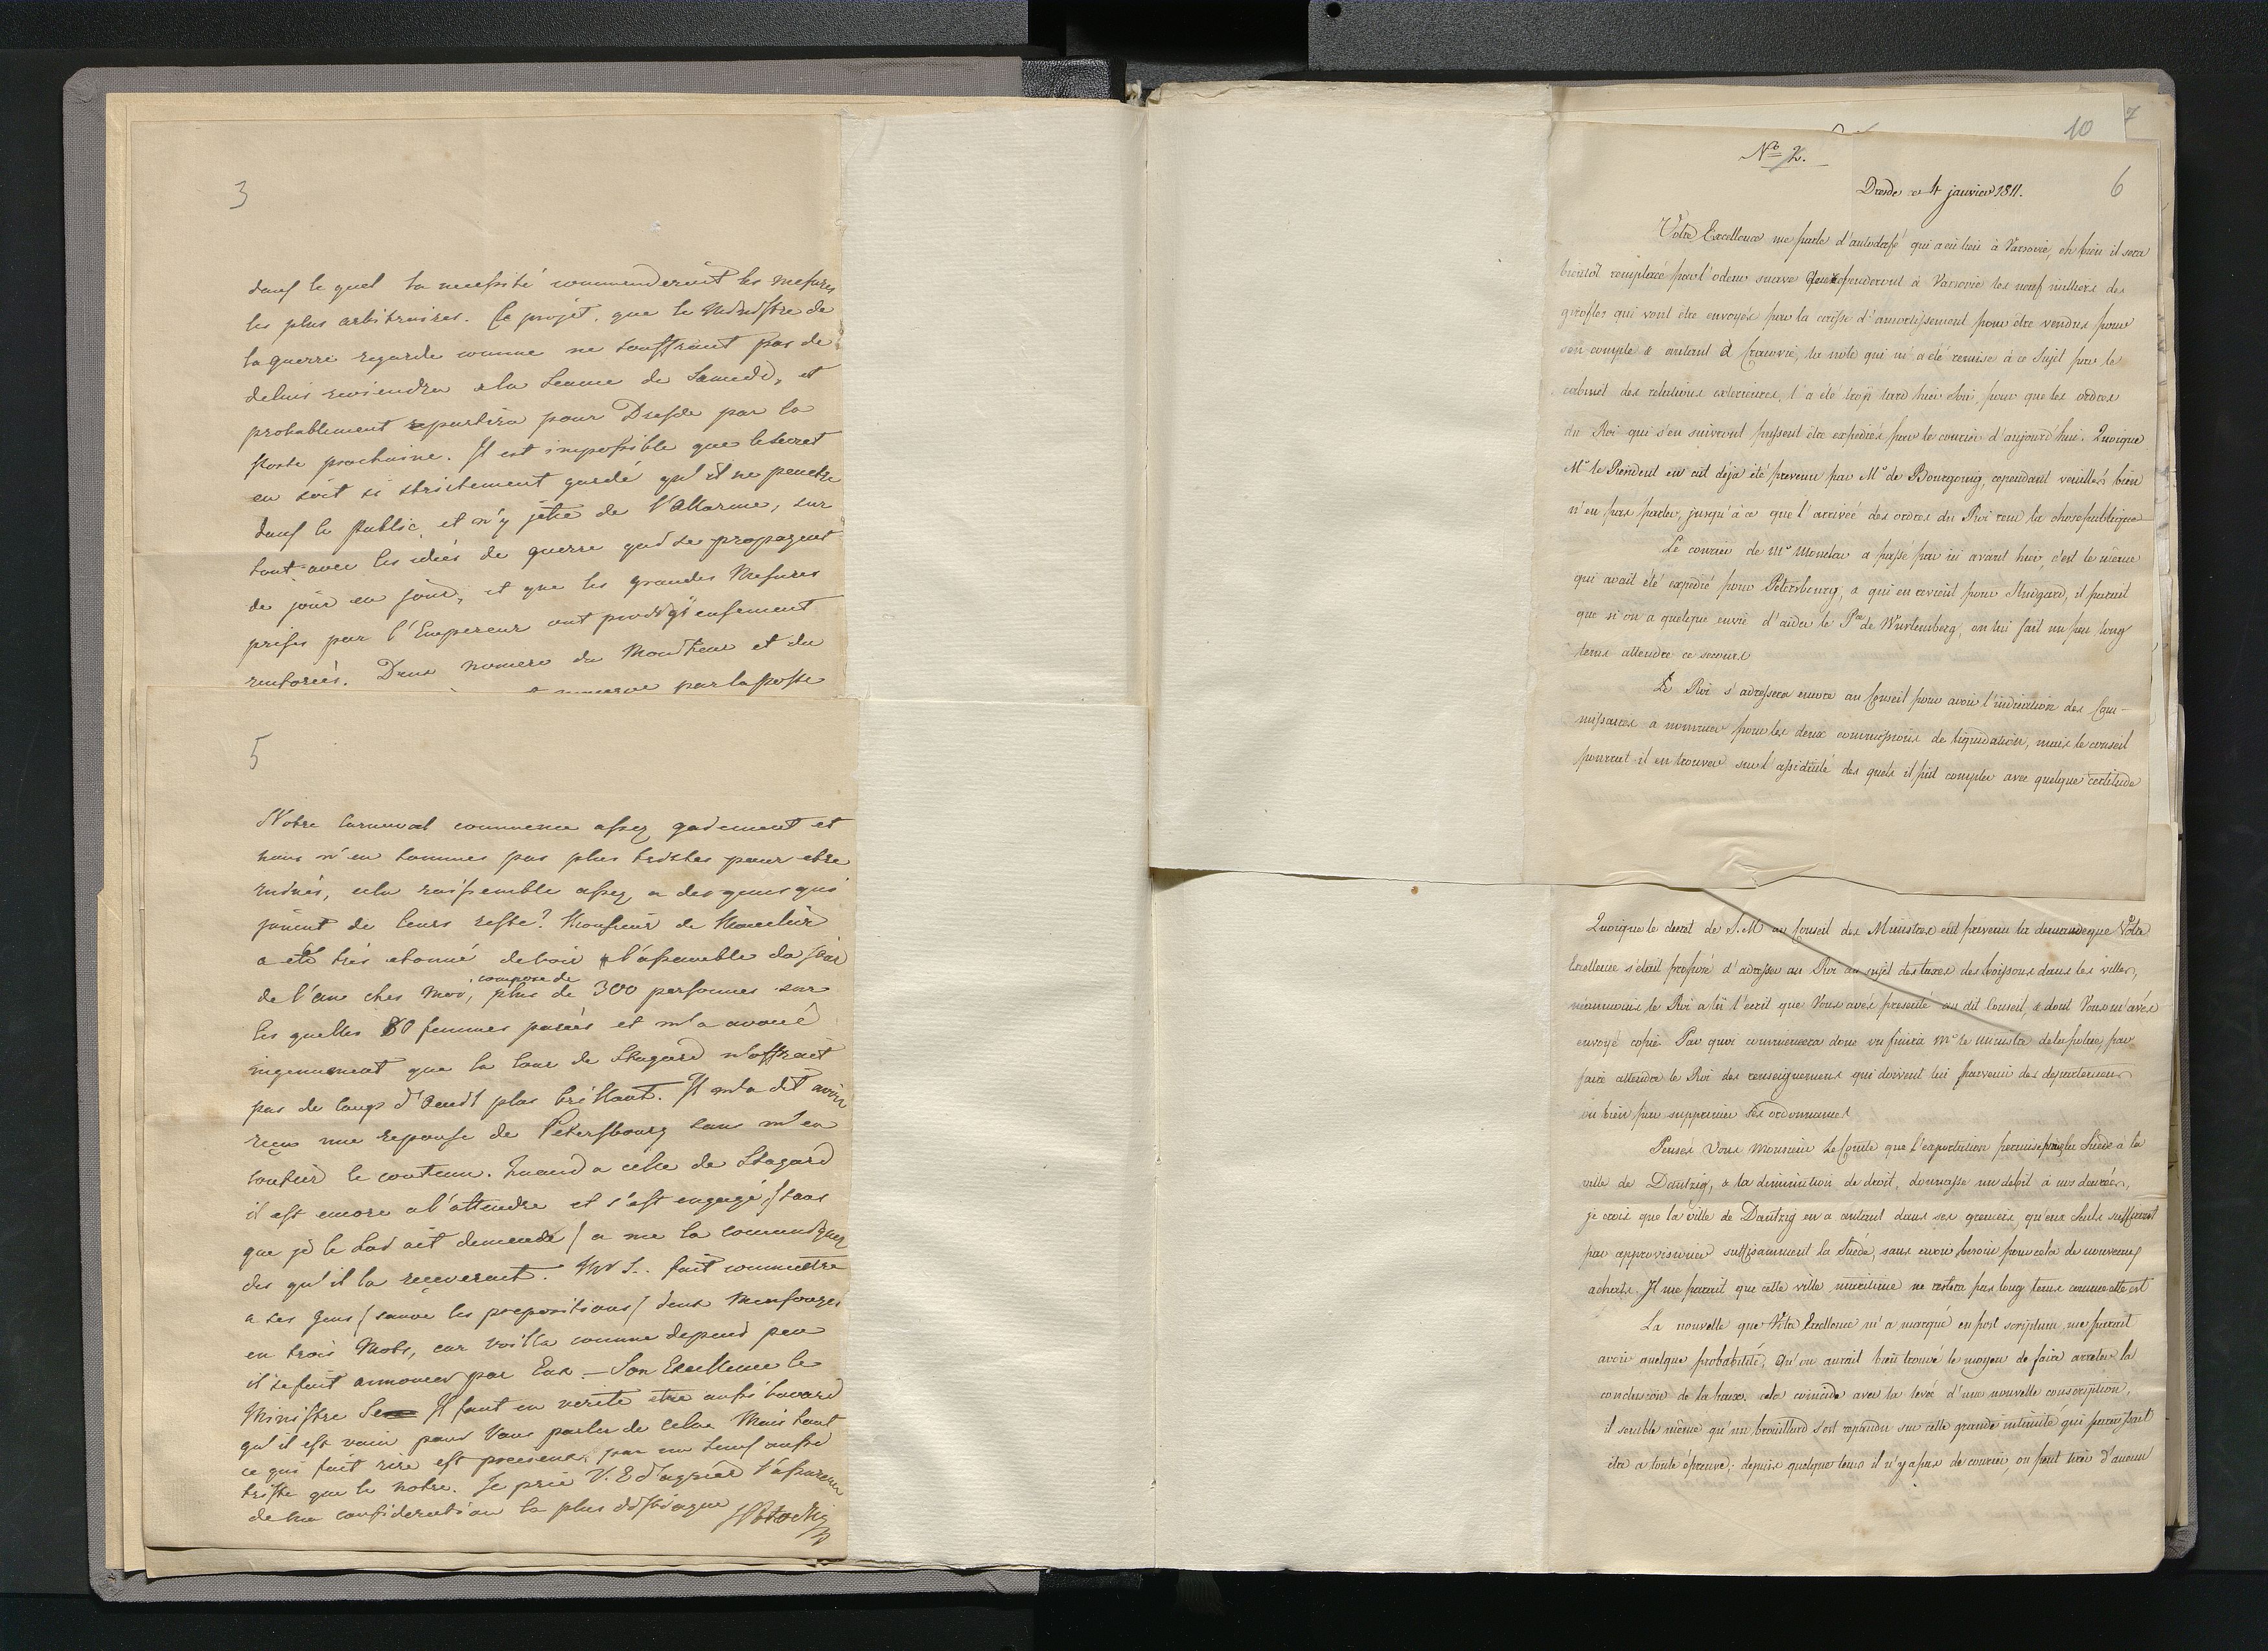 3
dans le quel la necessité commenderait les mesures
les plus arbitraires. Ce projet, que le Ministre de
la guerre regarde comme ne souffrant pas de
delais reviendra a la Seance de Samedi, et
probablement repartira pour Dresde par la
poste prochaine. Il est impossible que le secret
en soit si strictement gardé qu'il ne penetre
dans le Public, et n'y jette de l'Allarme, sur
tout avec les idées de guerre qui se propagent
de jour en jour, et que les grandes Mesures
prises par l'Empereur ont prodigieusement
renforcés. Deux numero du Moniteur et du
par la poste
5
Notre Carneval commence assez gaiement et
nous n'en sommes pas plus tristes pour etre
ruinés, cela ressemble assez a des gens qui
jouent de leurs reste? Monsieur de
a été très etonné de voir l'assemblée du jour
de l'an chez moi, composée de plus de 300 personnes sur
les quelles 80 femmes parées et m'a avoué
ingenument que la Cour de Stugard n'offrait
pas de coup d'oeuil plus brillant. Il m'a dit avoir
reçu une reponse de Petersbourg sans m'en
le contenu. Quand a celle de Stugard
il est encore a l'attendre et s'est engagé / sans
que je le lui ait demandé / a me la comuniquer
des qu'il la receverait. Mr S.. fait commettre
a ses gens / sauve les propositions / deux Mensonges
en trois Mots, car voilla comme depuis peu
il se fait annoncer par Eux - Son Excellence le
Ministre Se Il faut en verité etre aussi bavard
qu'il est vain pour Vous parler de cela. Mais tout
ce qui fait rire est precieux, par un tems aussi
triste que le notre. Je prie V. E d'agreer l'assurance
de ma consideration la plus distinguée SPotocki
10 7
No 2.
6
Dresde ce 4 janvier 1811.
Votre Excellence me parle d'autodafé qui a eu lieu à Varsovie, eh bien il sera
bientôt remplacé par l'odeur suave que repanderont à Varsovie les neuf milliers de
girofles qui vont être envoyés par la caisse d'amortissement pour être vendus pour
son compte & autant à Cracovie, la note qui m'a été remise à ce Sujet par le
cabinet des relations exterieures, l'a été trop tard hier Soir, pour que les ordres
du Roi qui s'en suivront puissent être expediés par le courier d'aujourd'hui. Quoique
Mr le Resident en ait déja été prevenu par Mr de Bourgoing, cependant veuillés bien
n'en pas parler, jusqu'à ce que l'arrivée des ordres du Roi rend la chose publique
Le courier de Mr Monclar a passé par ici avant hier, c'est le même
qui avait été expedié pour Petersbourg, & qui en revient pour Stutgard, il parait
que si on a quelque envie d'aider le Pce de Wurtemberg, on lui fait un peu long
tems attendre ce secours
Le Roi s'adressera encore au Conseil pour avoir l'indication des Com-
missaires a nommer pour les deux commissions de liquidation, mais le conseil
pourrat il en trouver sur l'assiduité des quels il put compter avec quelque certitude
Quoique le decret de S. M au Conseil des Ministres eût prevenu la demande que Votre
Excellence s'était proposé d'adresser au Roi au sujet des taxes des boissons dans les villes,
néanmoins le Roi a lû l'ecrit que Vous avés presenté au dit Conseil, & dont Vous m'avés
envoyé copie. Par quoi commencera donc ou finira Mr le Ministre de la police, par
faire attendre le Roi des renseignemens qui doivent lui parvenir des departemens
ou bien par supprimer ses ordonnances
Pensés Vous Monsieur le Comte que l'exportation permise par la Suède a la
ville de Dantzig, & la diminution de droit, donnasse un debit à nos denrées,
je crois que la ville de Dantzig en a autant dans ses greniers, qu'eux seuls suffiront
par approvisionner suffisamment la Suède, sans avoir besoin pour cela de nouveaux
achats. Il me parait que cette ville maritime ne restera pas long tems comme elle est
La nouvelle que Votre Excellence m'a marqué en post scriptum me parait
avoir quelque probabilité, Qu'on aurait bien trouvé le moyen de faire arreter la
conclusion de la paix. cela coincide avec la levée d'une nouvelle conscription,
il semble même qu'un brouillard s'est repandu sur cette grande intimité qui paraissait
être a toute épreuve; depuis quelque tems il n'y a pas de courier, on peut tirer d'aucun